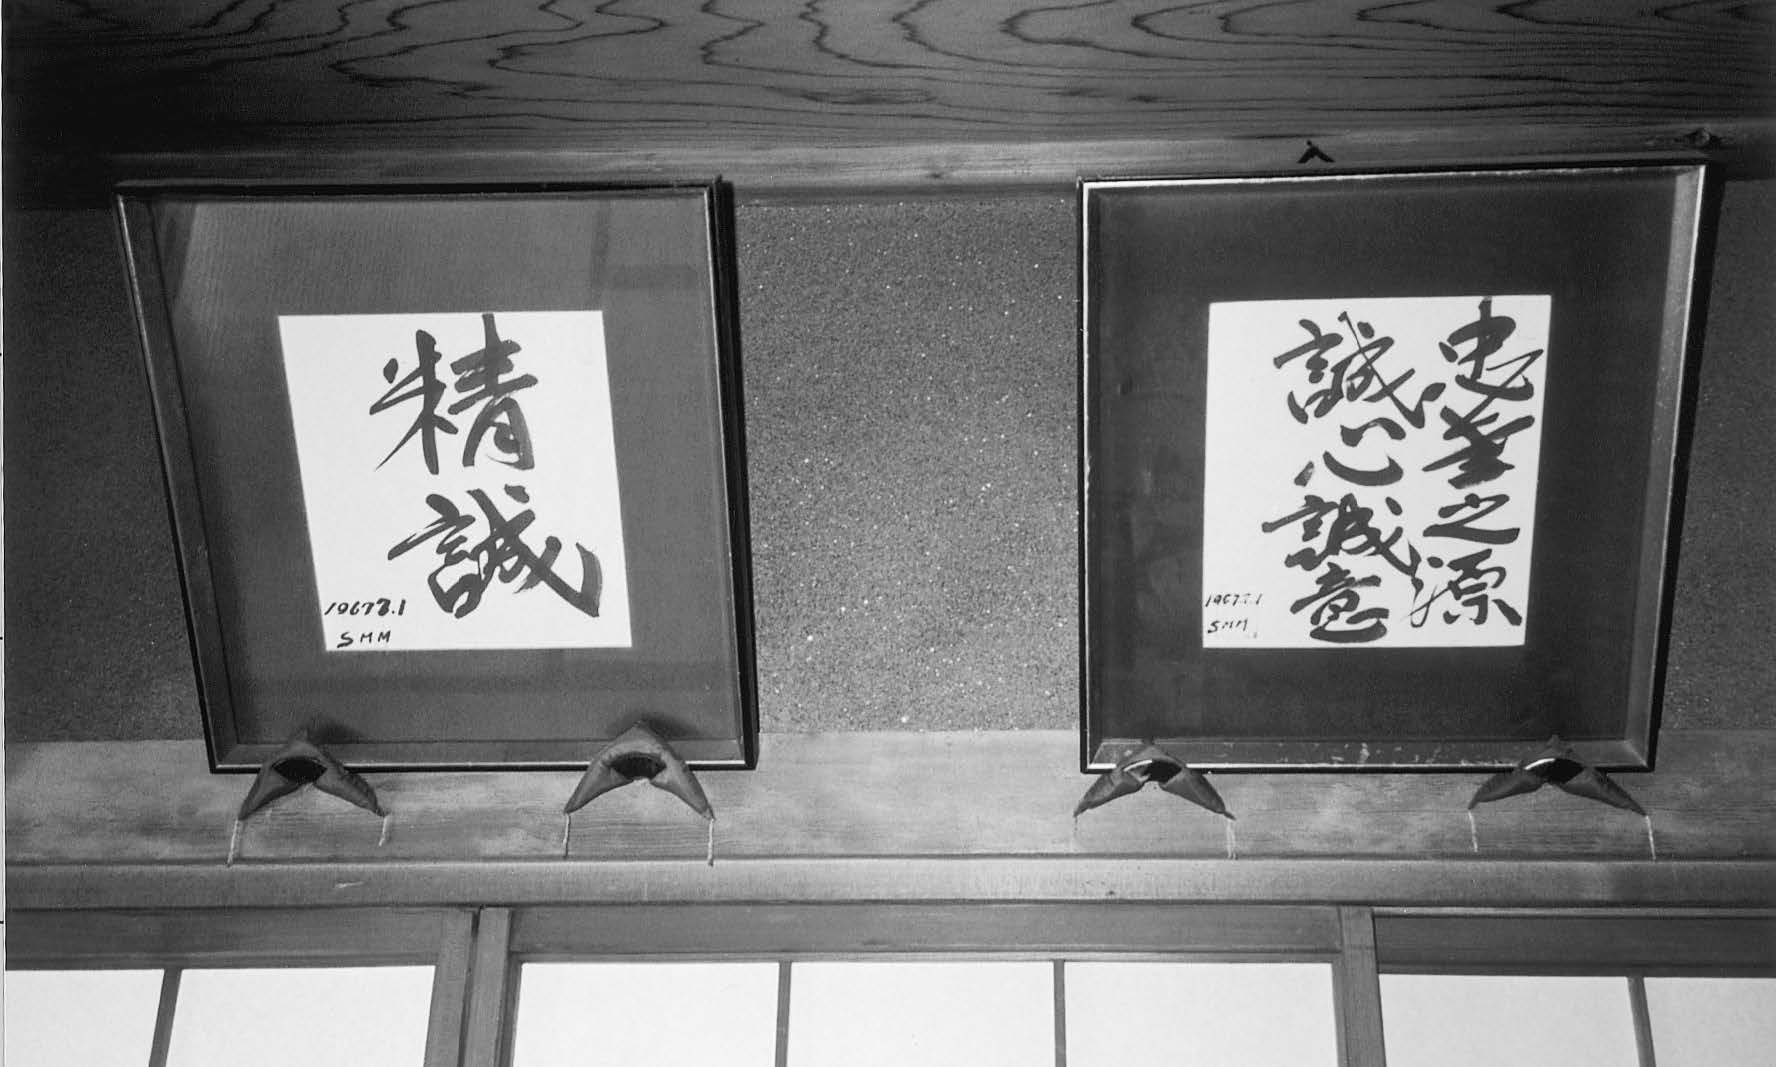 精誠
1967.7.1
SMM
忠 之源
誠心誠意
1967.7.1
SMM